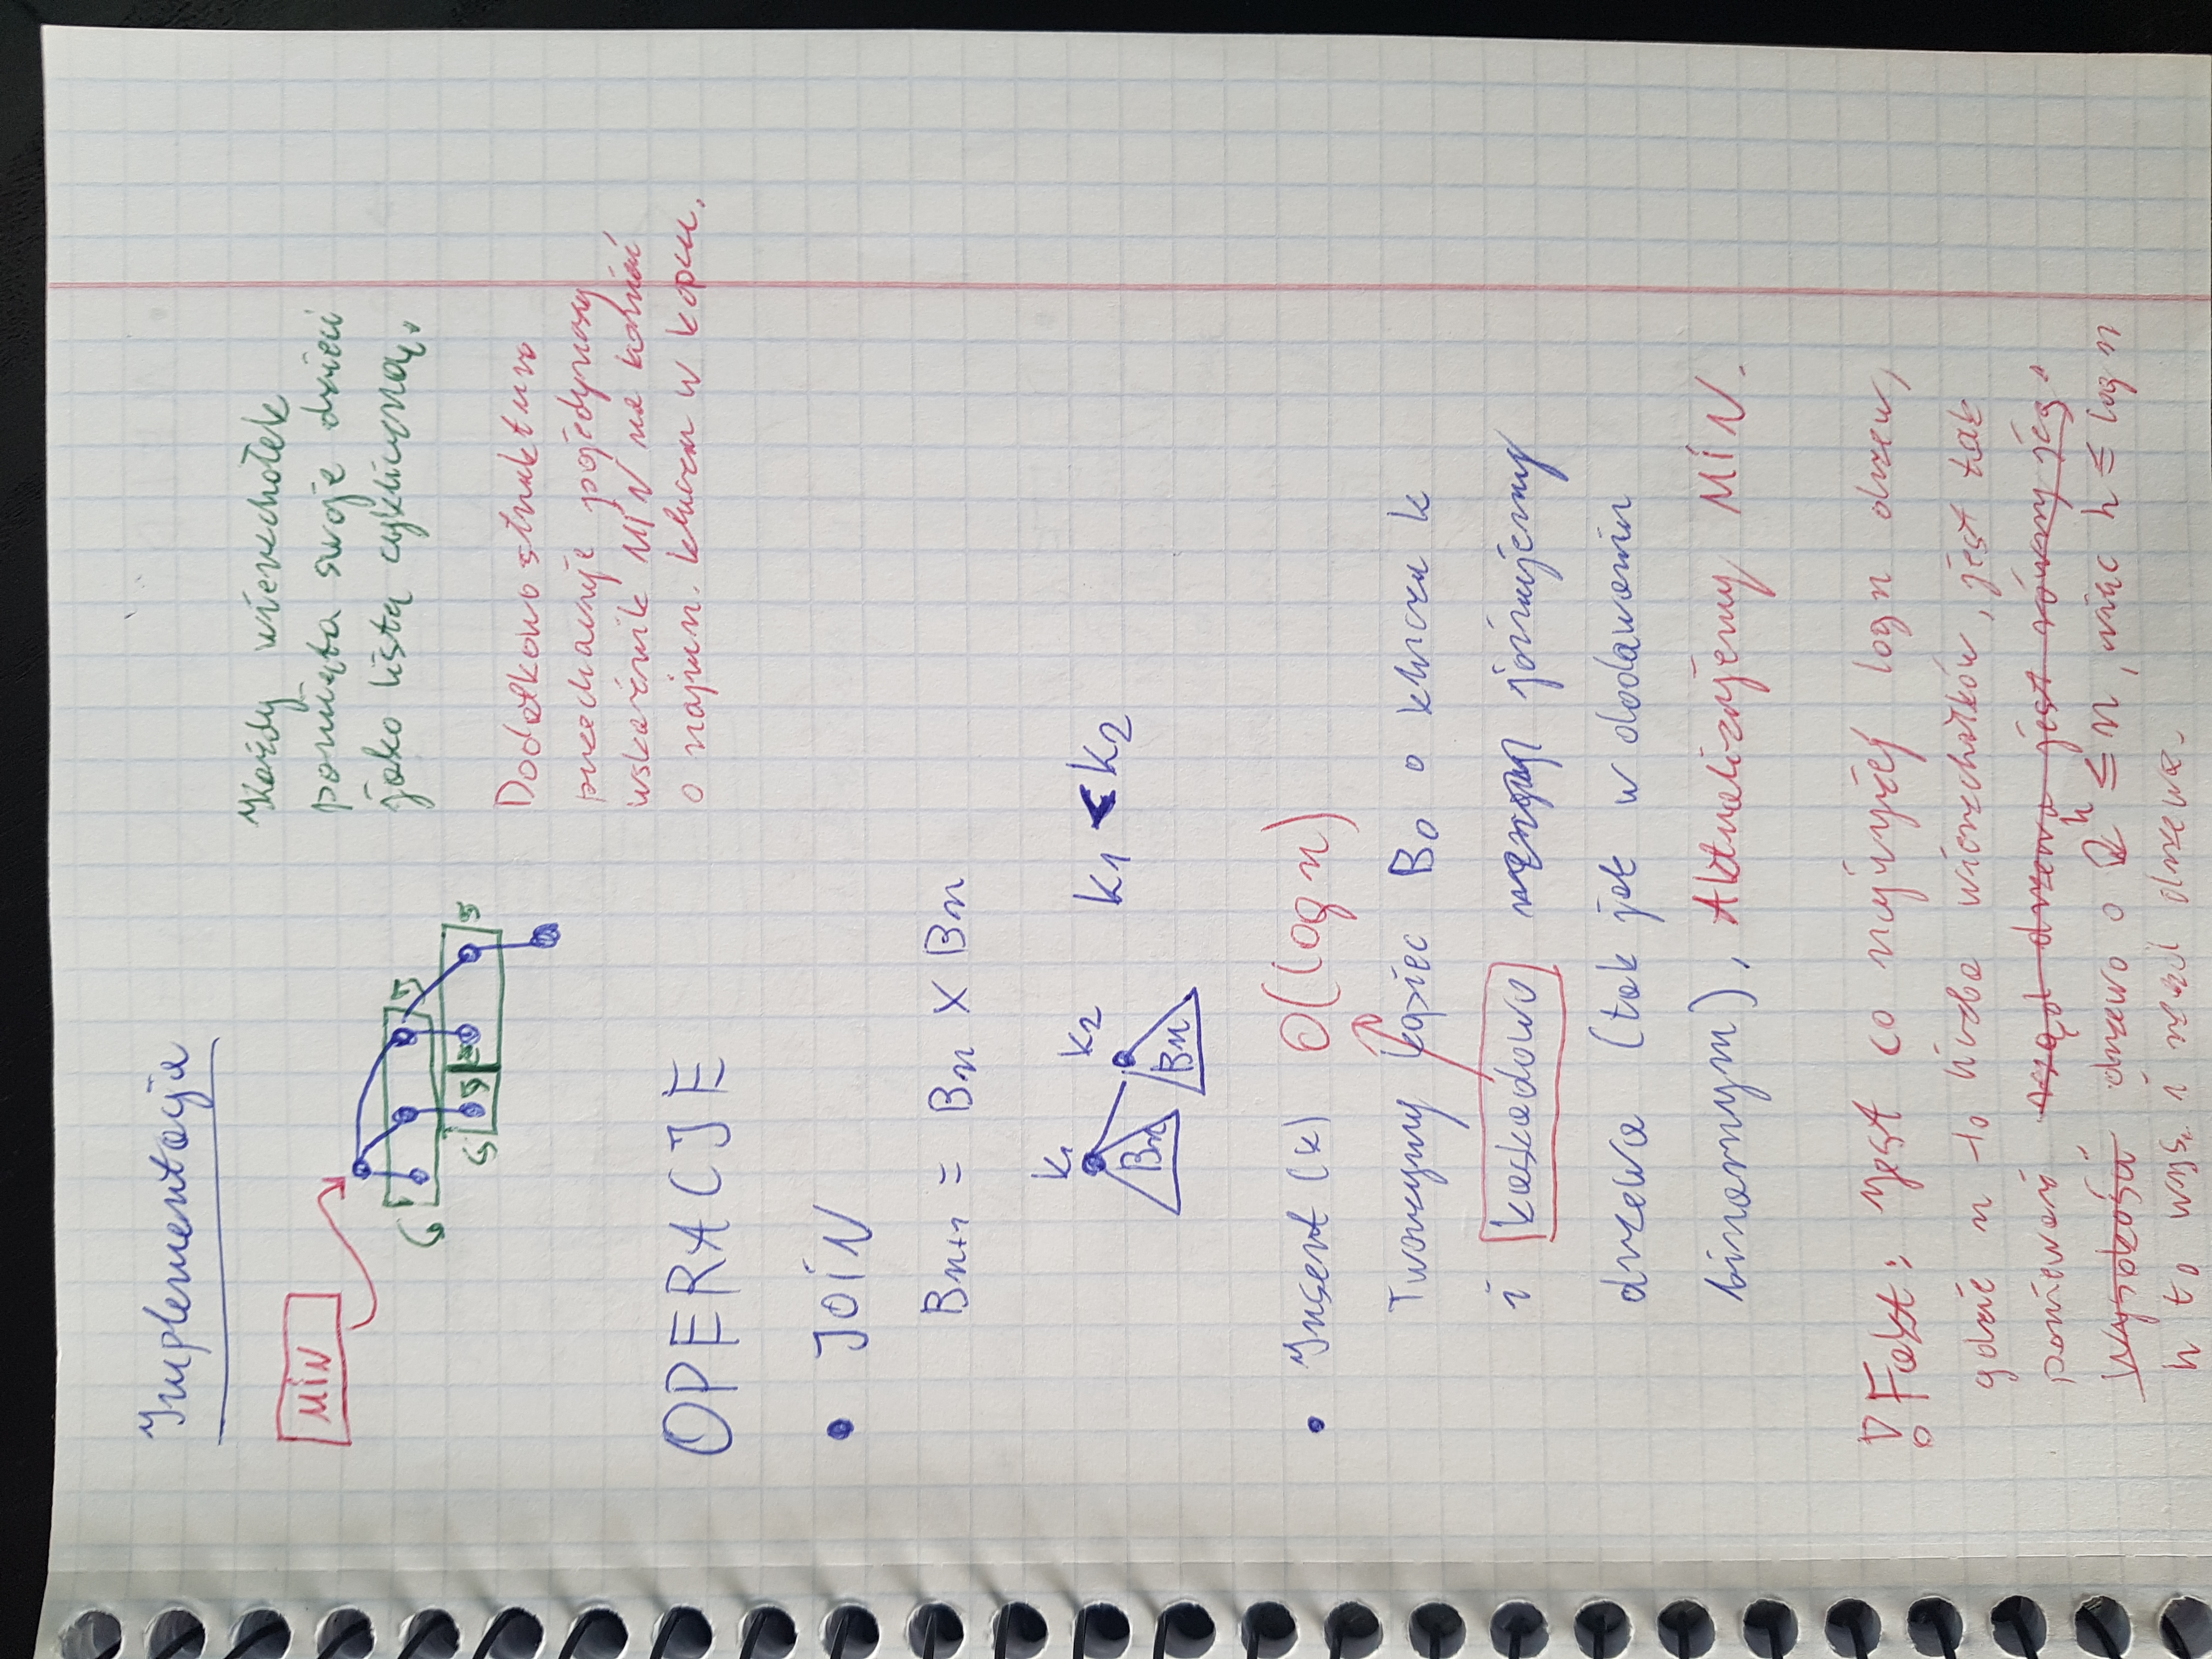 Implementacja
MIN
Każdy wierzchołek
pamięta swoje dzieci
jako listę cykliczną.
Dodatkowo struktura
przechowuje pojedynczy
wskaźnik MIN na korzeń
o najmn. kluczu w kopcu.
OPERACJE
• JOIN
Bn+1 = Bn X Bn
k1
k2
k1 < k2
Bn
Bn
• Insert (k) O(log n)
Tworzymy kopiec B0 o kluczu k
i kaskadowo joinujemy
drzewa (tak jak w dodawaniu
binarnym). Aktualizujemy MIN.
! Fakt: Jest co najwyżej log n drzew,
gdzie n to liczba wierzchołków, jest tak
ponieważ rząd drzewa jest równy jego
wysokości drzewo o 2^h ≤ n, więc h ≤ log n
h to wys. i rząd drzewa.